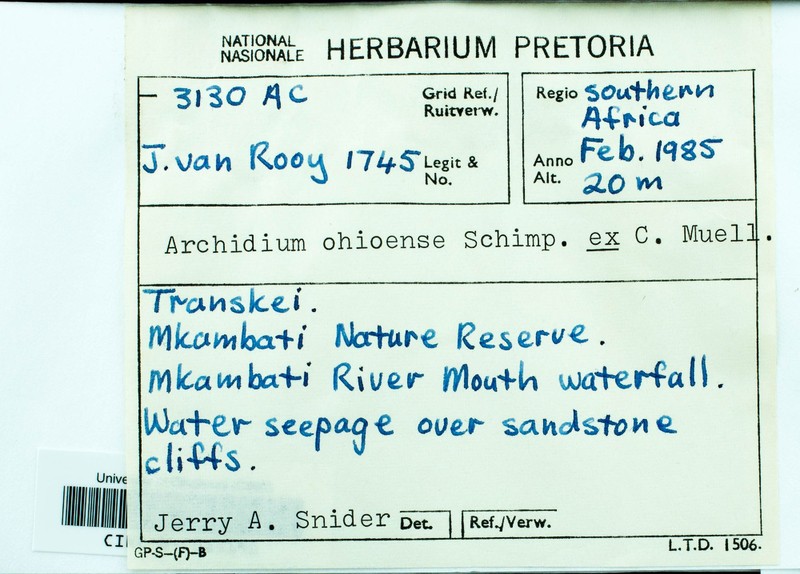 NATIONAL
NASIONALE HERBARIUM PRETORIA
– 3130 AC Grid Ref./
Ruitverw.
J. van Rooy 1745 Legit &
No.
Regio southern
Africa
Anno Feb. 1985
Alt. 20 m
Archidium ohioense Schimp. ex C. Muell.
Transkei.
Mkambati Nature Reserve.
Mkambati River Mouth waterfall.
Water seepage over sandstone
cliffs.
Jerry A. Snider Det. Ref./Verw.
GP-S-(F)-B L.T.D. 1506.